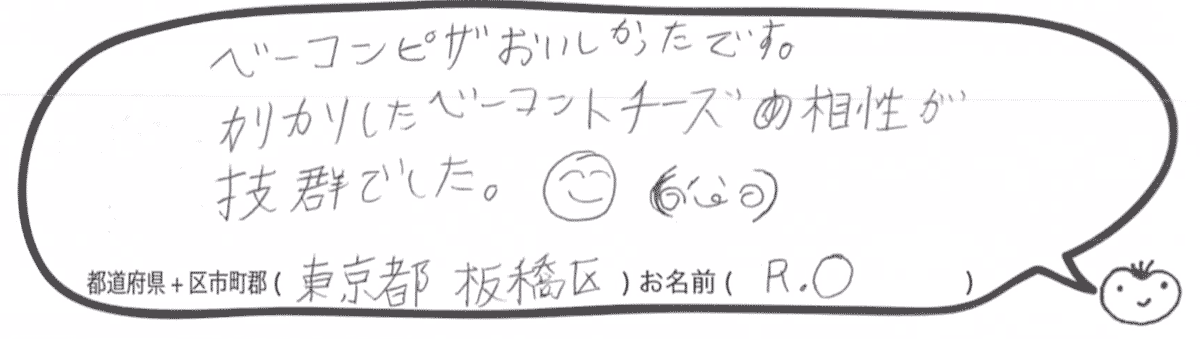 ベーコンピザおいしかったです。
カリカリしたベーコントチーズの相性が
抜群でした。
都道府県+区市町郡( 東京都 板橋区 )お名前( R.O )